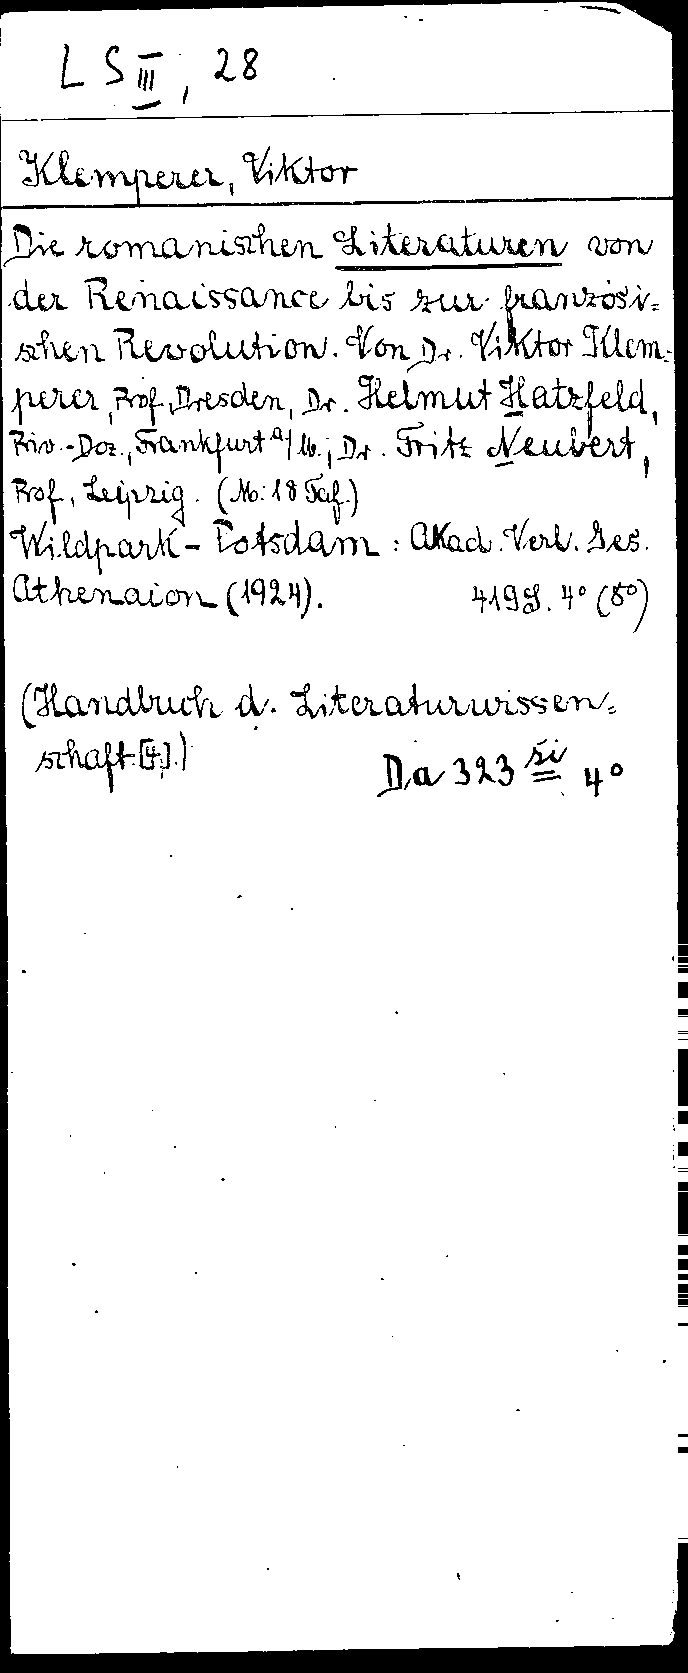 L S III, 28
Klemperer, Viktor
Die romanischen Literaturen von
der Renaissance bis zur französi=
schen Revolution. Von Dr. Viktor Klem=
perer, Prof, Dresden, Dr. Helmut Hatzfeld,
Priv.-Doz., Frankfurt a/M., Dr. Fritz Neubert,
Prof, Leipzig. (M: 18 Taf.)
Wildpark-Potsdam: Akad. Verl. Ges.
Athenaion (1924). 419 S. 4° (8°)
(Handbuch d. Literaturwissen=
schaft.[4].)
Da 323 si 4°